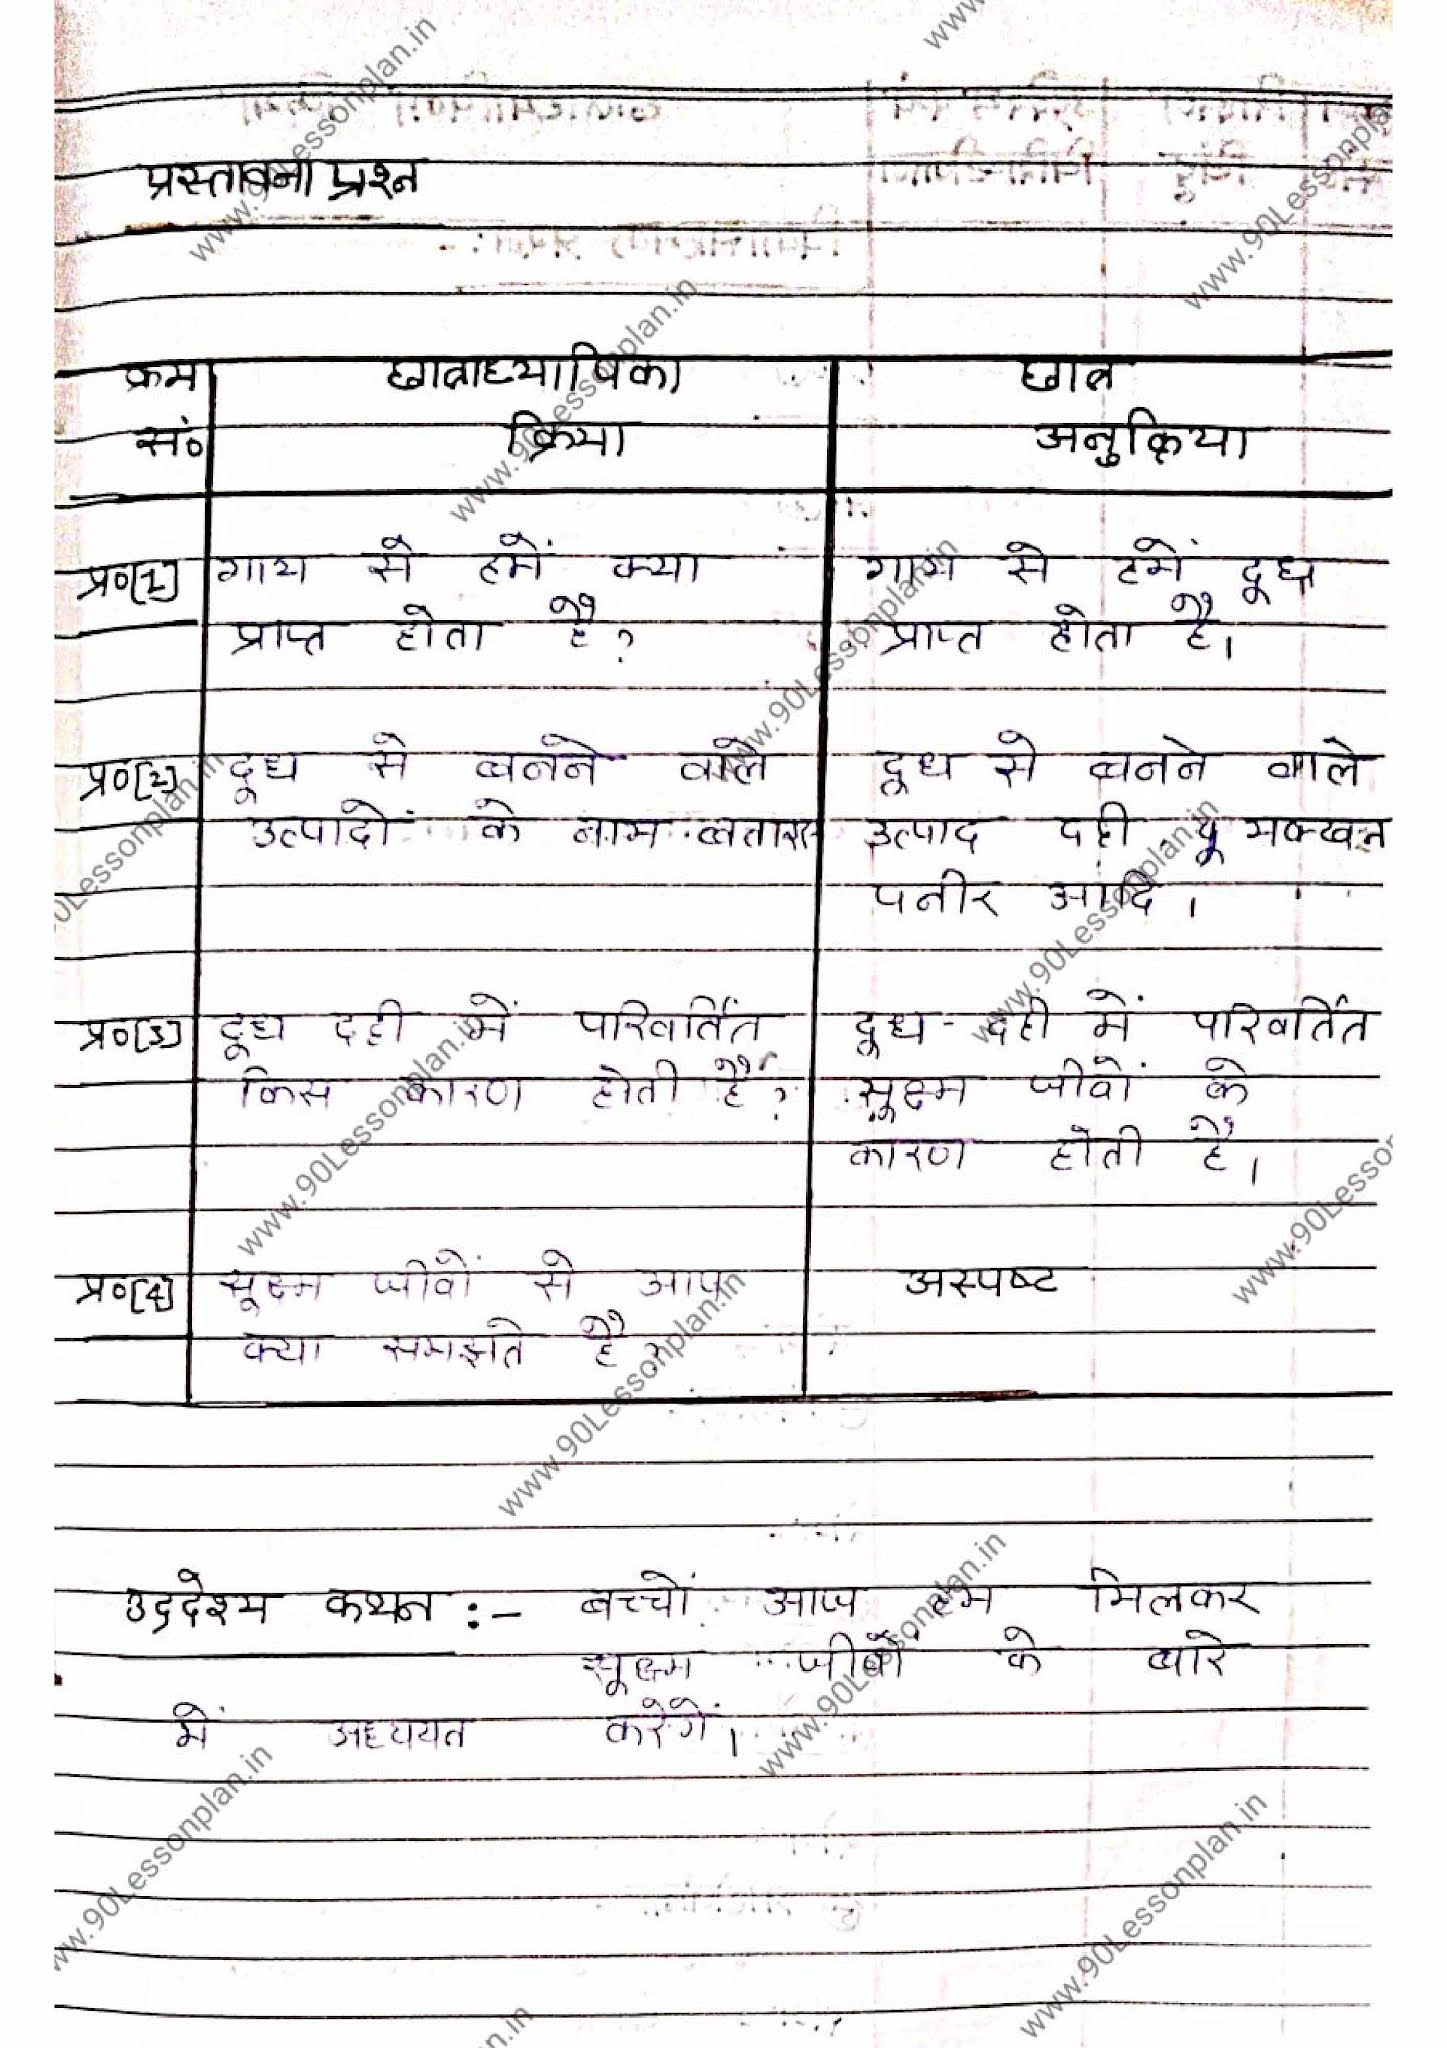 प्रस्तावना प्रश्न
क्रम छात्राध्यापिका छात्र
सं० क्रिया अनुक्रिया
प्र०[1] गाय से हमें क्या गाय से हमें दूध
प्राप्त होता है? प्राप्त होता है।
प्र०[2] दूध से बनने वाले दूध से बनने वाले
उत्पादों के नाम बताइए उत्पाद दही, मक्खन
पनीर आदि।
प्र०[3] दूध दही में परिवर्तित दूध - दही में परिवर्तित
किस कारण होती है? सूक्ष्म जीवों के
कारण होती है।
प्र०[4] सूक्ष्म जीवों से आप अस्पष्ट
क्या समझते है?
उद्देश्य कथन :- बच्चों आज हम मिलकर
सूक्ष्म जीवों के बारे
में अध्ययन करेगें।
www.90Lessonplan.in